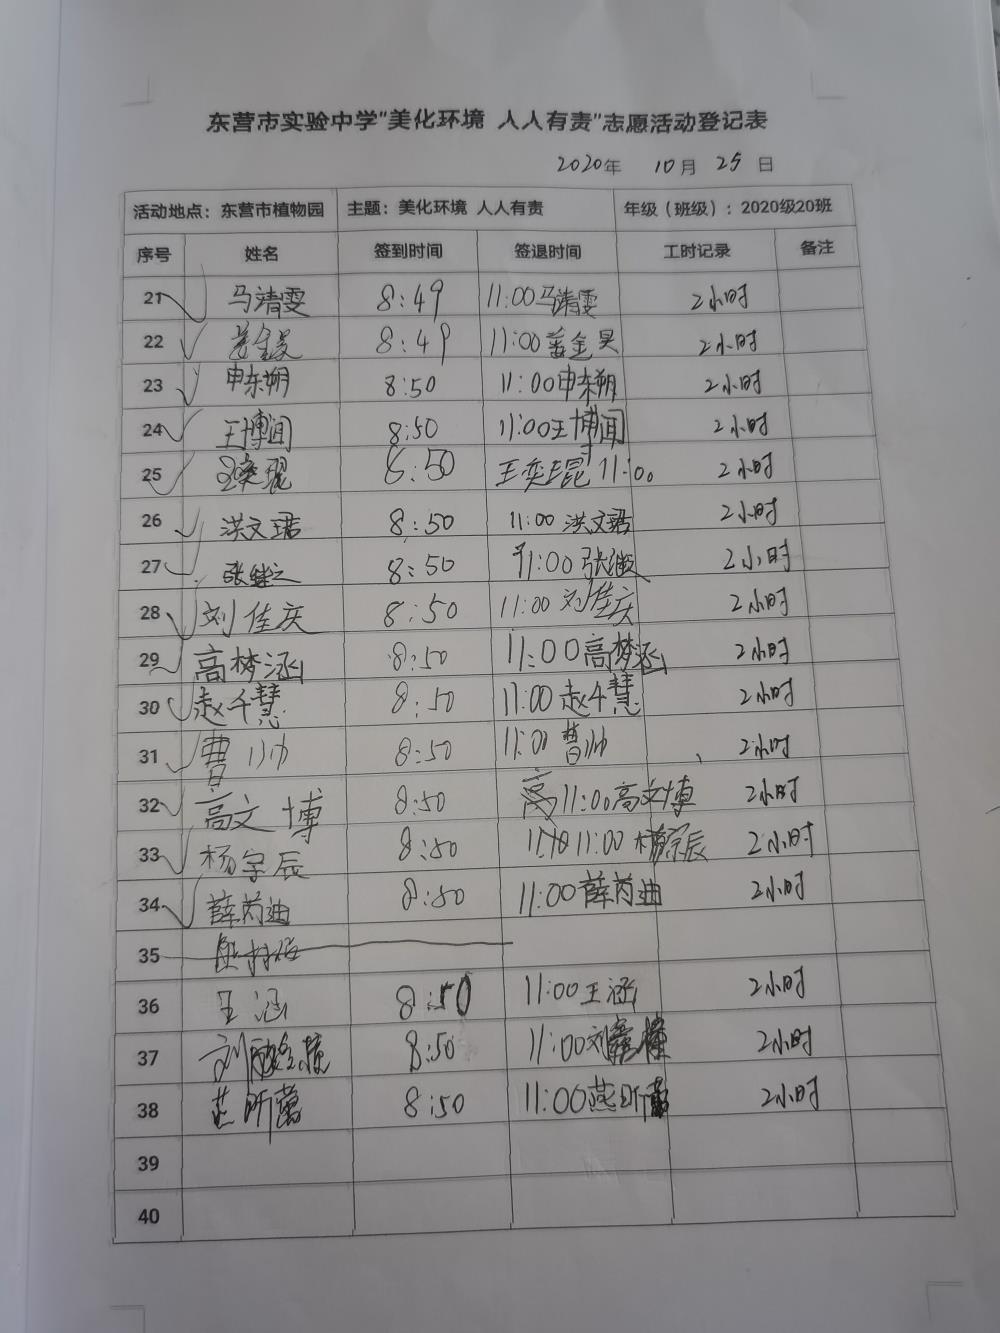 东营市实验中学“美化环境 人人有责”志愿活动登记表
2020年 10月 25日
活动地点：东营市植物园 主题：美化环境 人人有责 年级（班级）：2020级20班
序号 姓名 签到时间 签退时间 工时记录 备注
21 马靖雯 8:49 11:00马靖雯 2小时
22 8:49 11:00 2小时
23 申东朔 8:50 11:00申东朔 2小时
24 王博闻 8:50 11:00王博闻 2小时
25 王奕琨 8:50 王奕琨 11:00 2小时
26 洪文珺 8:50 11:00 洪文珺 2小时
27 8:50 11:00 2小时
28 刘佳庆 8:50 11:00 刘佳庆 2小时
29 高梦涵 8:50 11:00高梦涵 2小时
30 赵千慧 8:50 11:00 赵千慧 2小时
31 曹帅 8:50 11:00 曹帅 2小时
32 高文博 8:50 11:00高文博 2小时
33 杨宗辰 8:50 11:00 杨宗辰 2小时
34 薛芮迪 8:50 11:00薛芮迪 2小时
35
36 王涵 8:50 11:00王涵 2小时
37 8:50 11:00 2小时
38 8:50 11:00 2小时
39
40